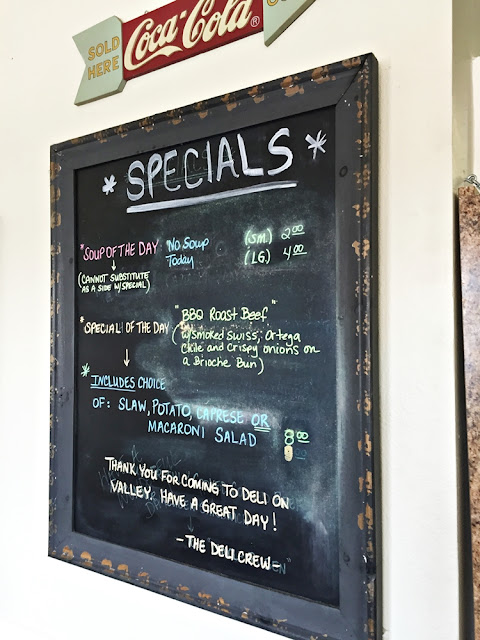 SOLD HERE
Coca-Cola
* SPECIALS *
* SOUP OF THE DAY No Soup (SM.) 2.00
Today (LG) 4.00
(CANNOT SUBSTITUTE
AS A SIDE W/SPECIAL)
"BBQ Roast Beef"
* SPECIAL OF THE DAY (w/Smoked Swiss, Ortega
Chile and Crispy onions on
a Brioche Bun)
* INCLUDES CHOICE
OF: SLAW, POTATO, CAPRESE OR
MACARONI SALAD 8.00
THANK YOU FOR COMING TO DELI ON
VALLEY. HAVE A GREAT DAY!
-THE DELI CREW-